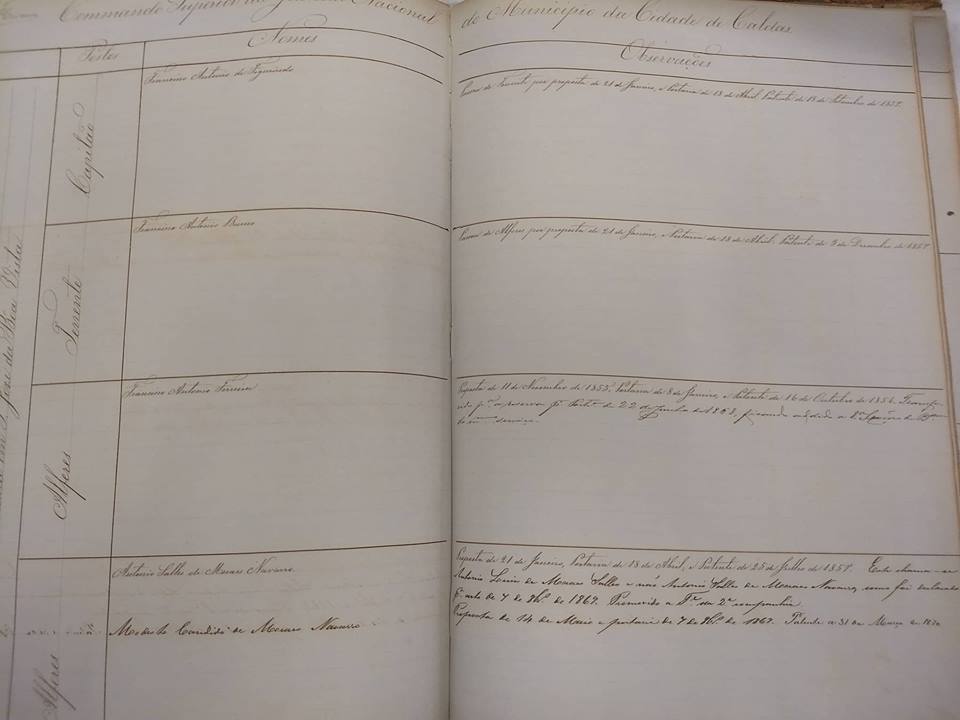 Commando Superior da Guarda Nacional do Municipio da Cidade de Caldas
Postos
Nomes
Observações
Capitão
Francisco Antonio de Figueiredo
Passou de Tenente por proposta de 21 de Janeiro, e Portaria de 18 de Abril. Patente de 18 de Setembro de 1857.
Tenente
Francisco Antonio Bueno
Passou de Alferes por proposta de 21 de Janeiro, e Portaria de 18 de Abril. Patente de 9 de Dezembro de 1857
Alferes
Francisco Antonio Ferreira
Proposta de 11 de Novembro de 1855. Portaria de 8 de Janeiro, e Patente de 16 de Outubro de 1856. Transfe-
rido pª a reserva pr Portª de 22 de Junho de 1868, ficando addido a 2ª Secção de Bam
serviço.
Alferes
Antonio Salles de Moraes Navarro.
Proposta de 21 de Janeiro, Portaria de 18 de Abril, e Patente de 25 de Julho de 1857. Este chama-se
Antonio Luis de Moraes Salles e não Antonio Salles de Moraes Navarro, como foi declarado
acto de 7 de 9bro de 1869. Promovido a Te da 2ª companhia
Modesto Candido de Moraes Navarro
Proposta de 14 de Maio e portaria de 7 de 9bro de 1869. Patente a 31 de Março de 1870
da Boa Vista